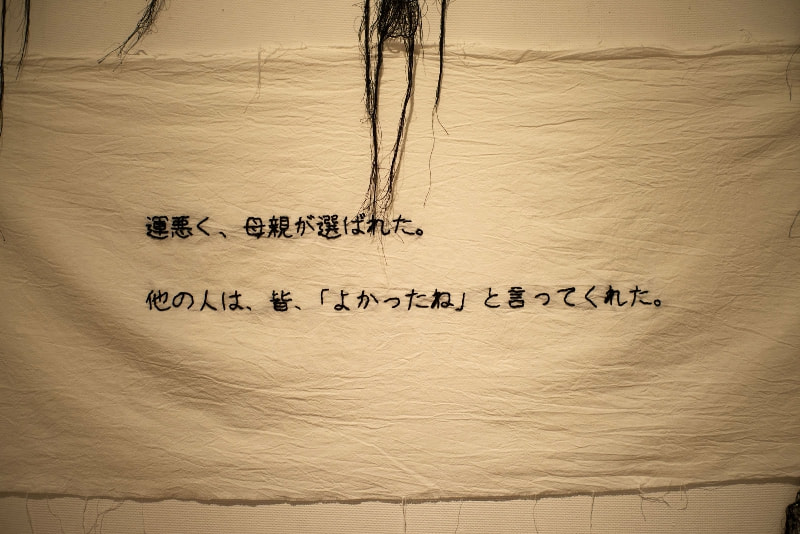 運悪く、母親が選ばれた。
他の人は、皆、「よかったね」と言ってくれた。